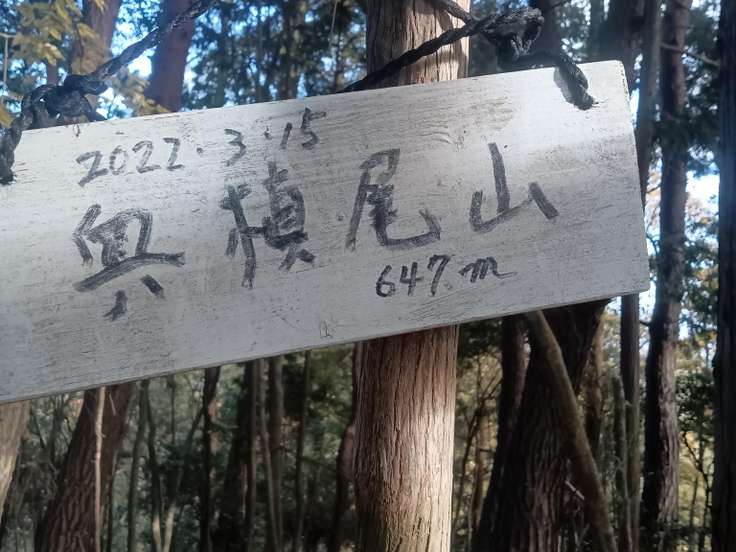 2022.3.15
奥槙尾山
647m